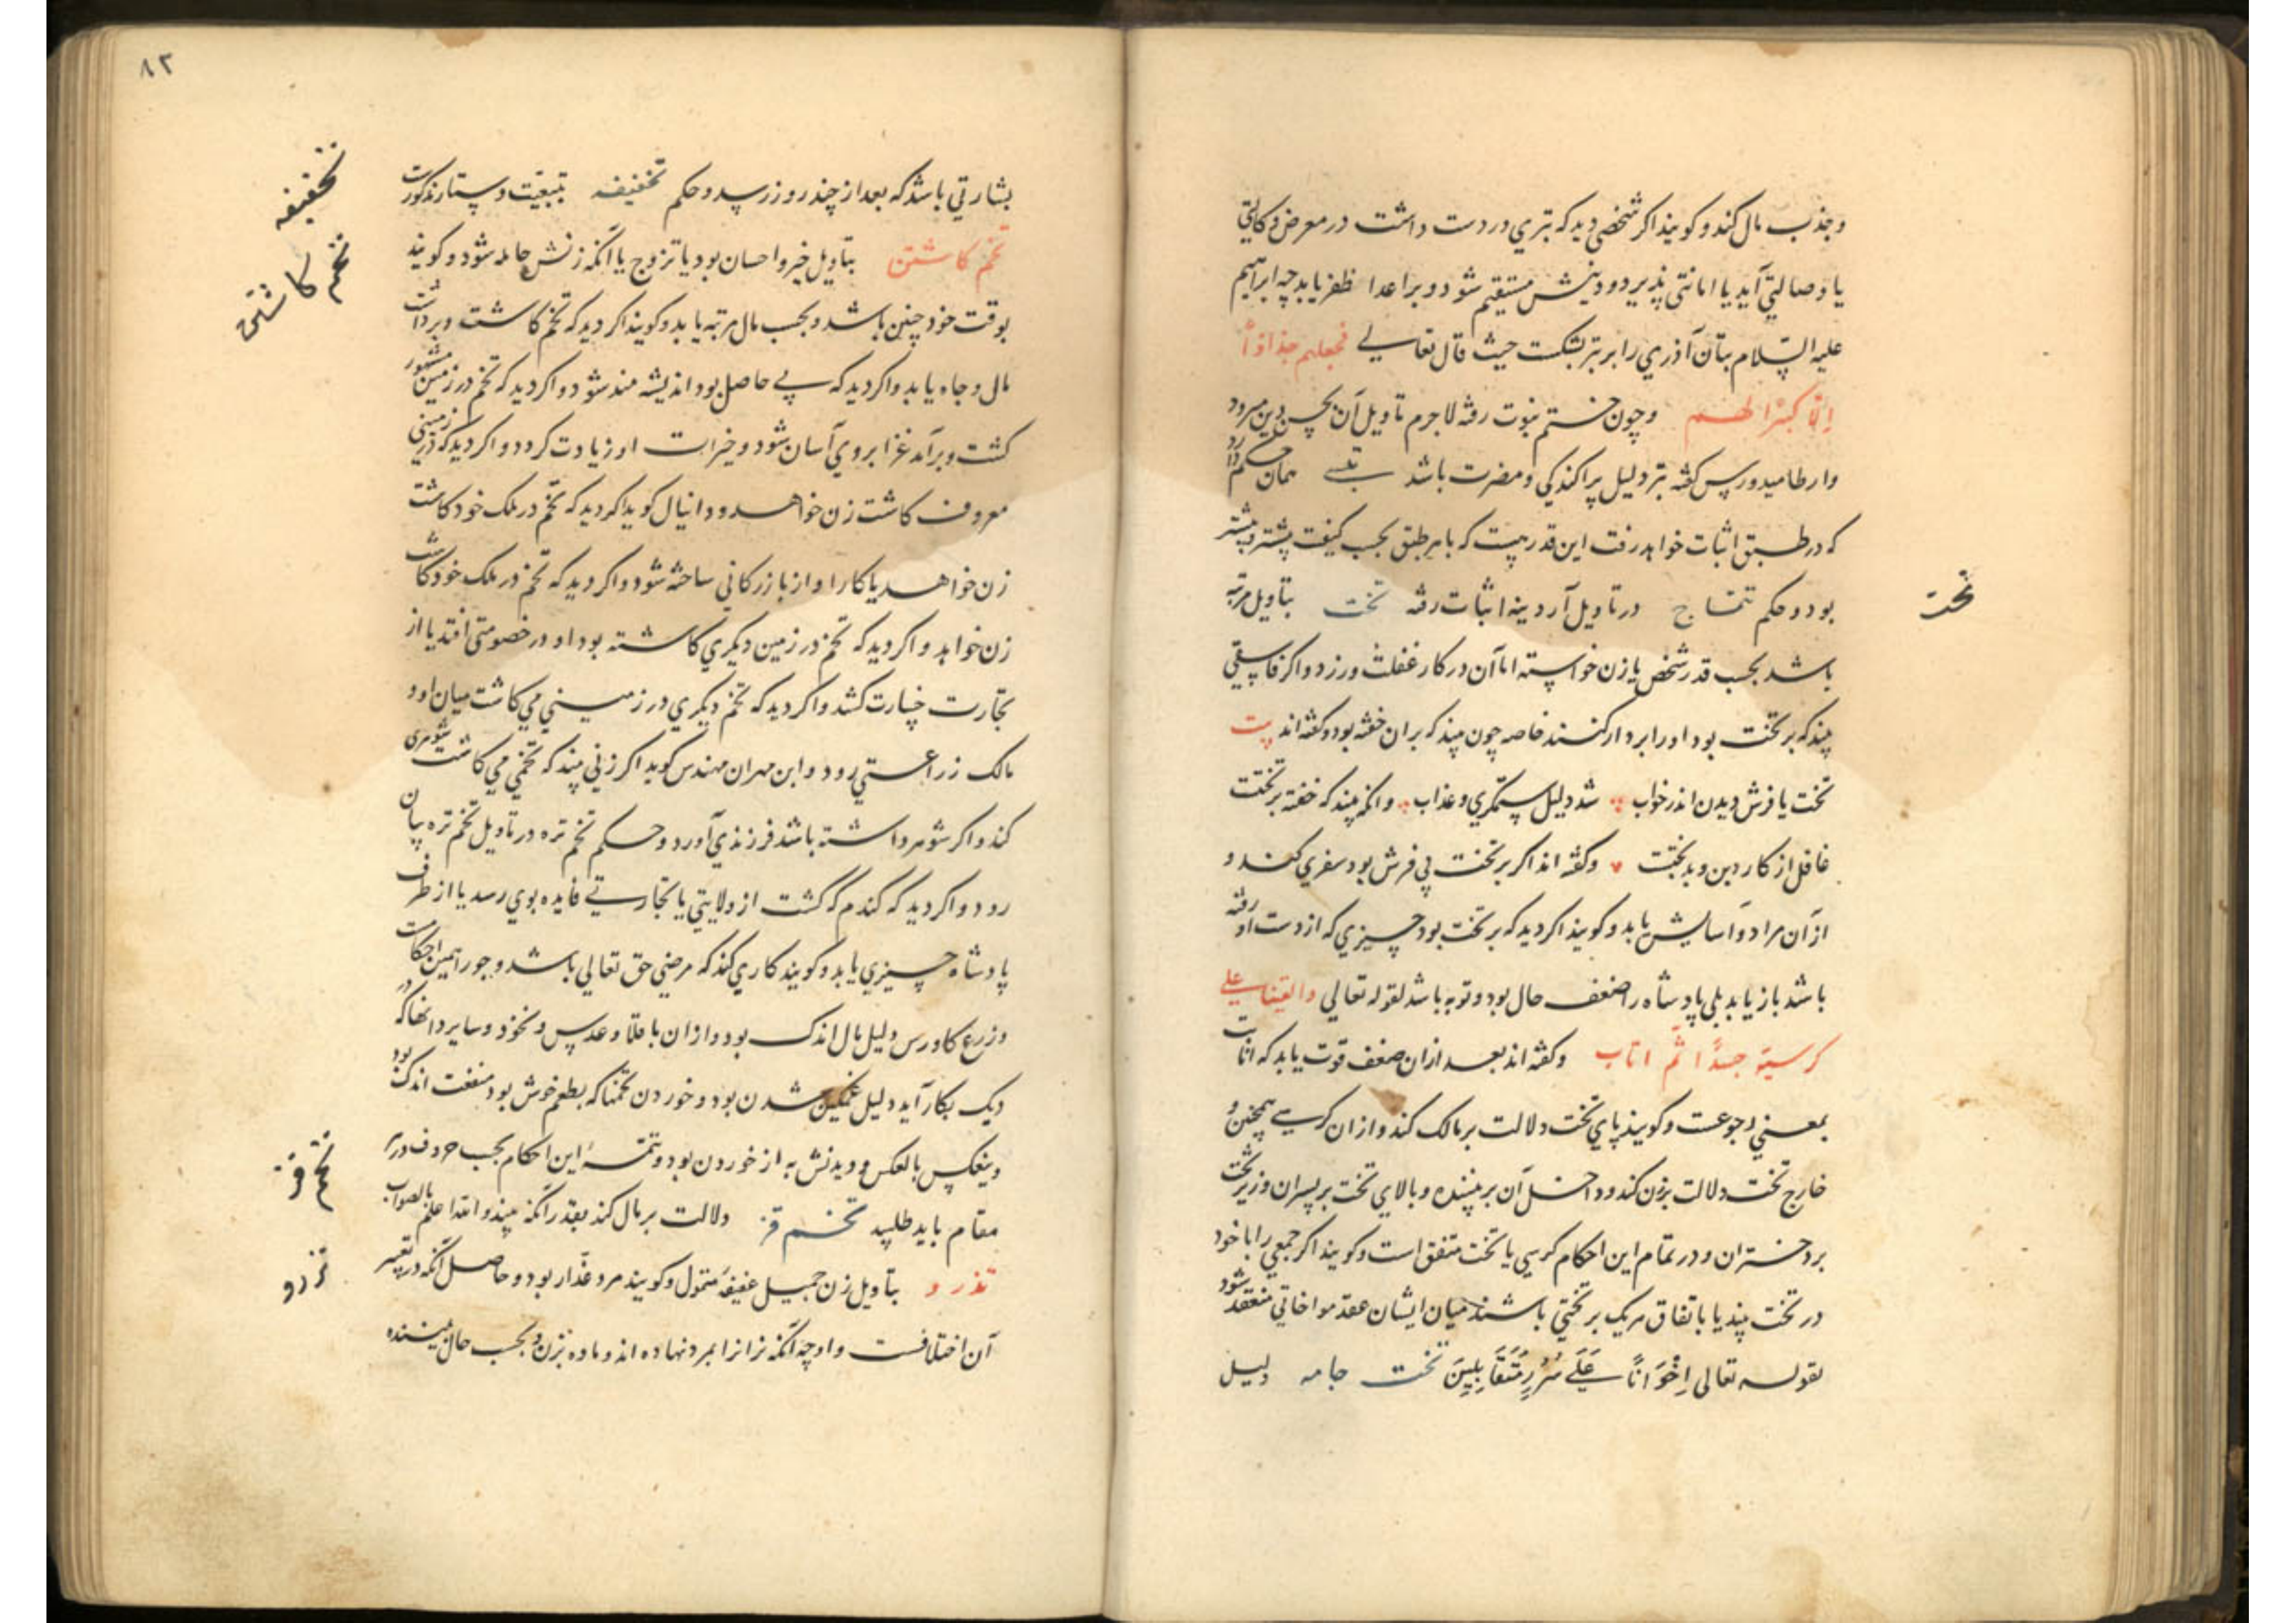 و جذب مال کند و کویند اکر شخصی دید که تبری در دست داشت در معرض وکالتی
یا وصالتی آید یا امانتی پذیرد و دینش مستقیم شود و بر اعدا ظفر یابد چه ابراهیم
علیه السلام بتان آذری را بر تبر بشکست حیث قال تعالی فجعلهم جذاذاً
إلّا کبیرًا لهم و چون ختم نبوت رفته لاجرم تاویل آن بحسن دین میرود
وارطامیدورس کفته تبر دلیل پراکندکی و مضرت باشد تبسی همان حکم دارد
که در طبق اثبات خواهد رفت این قدر هست که با هر طبق بحسب کیفیت پیشتر و بیشتر
بود و حکم تتماج در تاویل آردینه اثبات رفته تخت بتاویل مرتبه
باشد بحسب قدر شخص یا زن خواسته اما آن در کار غفلت ورزد و اکر فاسقی
بیند که بر تخت بود او را بردار کنند خاصه چون بیند که بران خفته بود و کفته اند بیت
تخت یا فرش دیدن اندر خواب شد دلیل ستمکری و عذاب وانکه بیند که خفته بر تختت
غافل از کار دین و بدبختت و کفته اند اکر بر تخت بی فرش بود سفری کند و
از آن مراد و آسایش یابد و کویند اکر دید که بر تخت بود چیزی که از دست او رفته
باشد باز یابد بلی پادشاه را ضعف حال بود و توبه باشد لقوله تعالی والقینا علی
کرسیّه جسدًا ثمّ اناب و کفته اند بعد ازان ضعف قوت یابد که انابت
بمعنی رجوعست و کویند پای تخت دلالت بر مالک کند و ازان کرسی همچنین و
خارج تخت دلالت بزن کند و داخل آن بر بیننده و بالای تخت بر پسران و زیر تخت
بر دختران و در تمام این احکام کرسی با تخت متفق است و کویند اکر جمعی را با خود
در تخت بیند یا باتفاق هریک بر تختی باشند میان ایشان عقد مواخاتی منعقد شود
لقوله تعالی إِخْوَانًا عَلَى سُرُرٍ مُتَقَابِلِینَ تخت جامه دلیل
تخت
۸۲
بشارتی باشد که بعد از چند روز رسد و حکم تخفیفه بتبعیت دستار مذکورست
تخم کاشتن بتاویل خیر و احسان بود یا تزوج یا آنکه زنش حامله شود و کویند
بوقت خود چنین باشد و بحسب مال مرتبه یابد و کویند اکر دید که تخم کاشت و برداشت
مال و جاه یابد و اکر دید که بی حاصل بود اندیشه مند شود و اکر دید که تخم در زمین مشهور
کشت و برآمد غزا بر وی آسان شود و خیرات او زیادت کردد و اکر دید که در زمینی
معروف کاشت زن خواهد و دانیال کوید اکر دید که تخم در ملک خود کاشت
زن خواهد یا کار او از بازرکانی ساخته شود و اکر دید که تخم در ملک خود کاشت
زن خواهد و اکر دید که تخم در زمین دیکری کاشته بود او در خصومتی افتد یا از
تجارت خسارت کشد و اکر دید که تخم دیکری در زمینی می کاشت میان او و
مالک زراعتی رود و ابن مهران مهندس کوید اکر زنی بیند که تخمی می کاشت شوهری
کند و اکر شوهر داشته باشد فرزندی آورد و حکم تخم تره در تاویل تخم تره بیان
رود و اکر دید که کندم کشت از ولایتی یا تجارتی فایده بوی رسد یا از طرف
پادشاه چیزی یابد و کویند کاری کند که مرضی حق تعالی باشد و جو را همین احکامست
و زرع کاورس دلیل مال اندک بود و ازان باقلا و عدس و نخود و سایر دانها که در
دیک بکار آید دلیل غمکین شدن بود و خوردن تخمها که بطعم خوش بود منفعت اندک بود
وینعکس بالعکس و دیدنش به از خوردن بود و تتمه این احکام بحسب حروف در هر
مقام باید طلبید تخم قز دلالت بر مال کند بقدر آنکه بیند و الله اعلم بالصواب
تذرو بتاویل زن جمیل عفیفه متمول و کویند مرد غدار بود و حاصل آنکه در تعبیر
آن اختلافست و اوجه آنکه نر انرا بمرد نهاده اند و ماده بزن و بحسب حال بیننده
تخفیفه
تخم کاشتن
تخم قز
تذرو